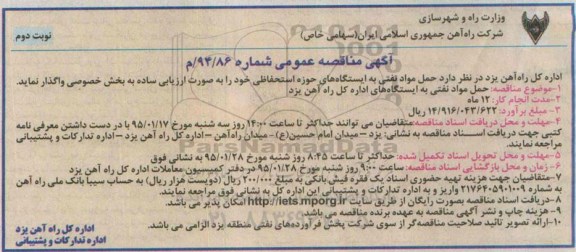 وزارت راه و شهرسازی
شرکت راه‌آهن جمهوری اسلامی ایران(سهامی خاص)
نوبت دوم
آگهی مناقصه عمومی شماره ۹۴/۸۶/م
اداره کل راه‌آهن یزد در نظر دارد حمل مواد نفتی به ایستگاه‌های حوزه استحفاظی خود را به صورت ارزیابی ساده به بخش خصوصی واگذار نماید.
۱-موضوع مناقصه: حمل مواد نفتی به ایستگاه‌های اداره کل راه آهن یزد
۲-مدت انجام کار: ۱۲ ماه
۳- مبلغ برآورد: ۱۴/۹۱۶/۰۴۳/۶۲۲ ریال
۴-مهلت و محل دریافت اسناد مناقصه:متقاضیان می توانند حداکثر تا ساعت ۱۴:۰۰ روز سه شنبه مورخ ۹۵/۰۱/۱۷ با در دست داشتن معرفی نامه
کتبی جهت دریافت اسناد مناقصه به نشانی: یزد – میدان امام حسین(ع)– میدان راه‌آهن –اداره کل راه آهن یزد – اداره تدارکات و پشتیبانی
مراجعه نمایند.
۵-مهلت و محل تحویل اسناد تکمیل شده: حداکثر تا ساعت ۸:۴۵ روز شنبه مورخ ۹۵/۰۱/۲۸ به نشانی فوق
۶-زمان و محل بازگشایی اسناد مناقصه: ساعت ۹:۰۰ روز شنبه مورخ ۹۵/۰۱/۲۸ در دفتر کمیسیون معاملات اداره کل راه آهن یزد
۷-متقاضیان جهت هزینه تهیه حضوری اسناد یک فقره فیش بانکی به مبلغ ۲۰۰/۰۰۰ ریال (دویست هزار ریال) به حساب سیبا بانک ملی راه آهن
به شماره ۲۱۷۶۴۰۵۹۰۱۰۰۹ واریز و به اداره تدارکات و پشتیبانی این اداره کل به نشانی فوق مراجعه نمایند.
۸-دریافت اسناد مناقصه بصورت رایگان از طریق سایت http://iets.mporg.ir امکان پذیر می باشد.
۹-هزینه چاپ و نشر آگهی مناقصه به عهده برنده مناقصه می باشد.
۱۰-ارائه تصویر تائید صلاحیت مناقصه‌گر از سوی شرکت پخش فرآورده‌های نفتی منطقه یزد الزامی می باشد.
اداره کل راه آهن یزد
اداره تدارکات و پشتیبانی
ParsNamadData